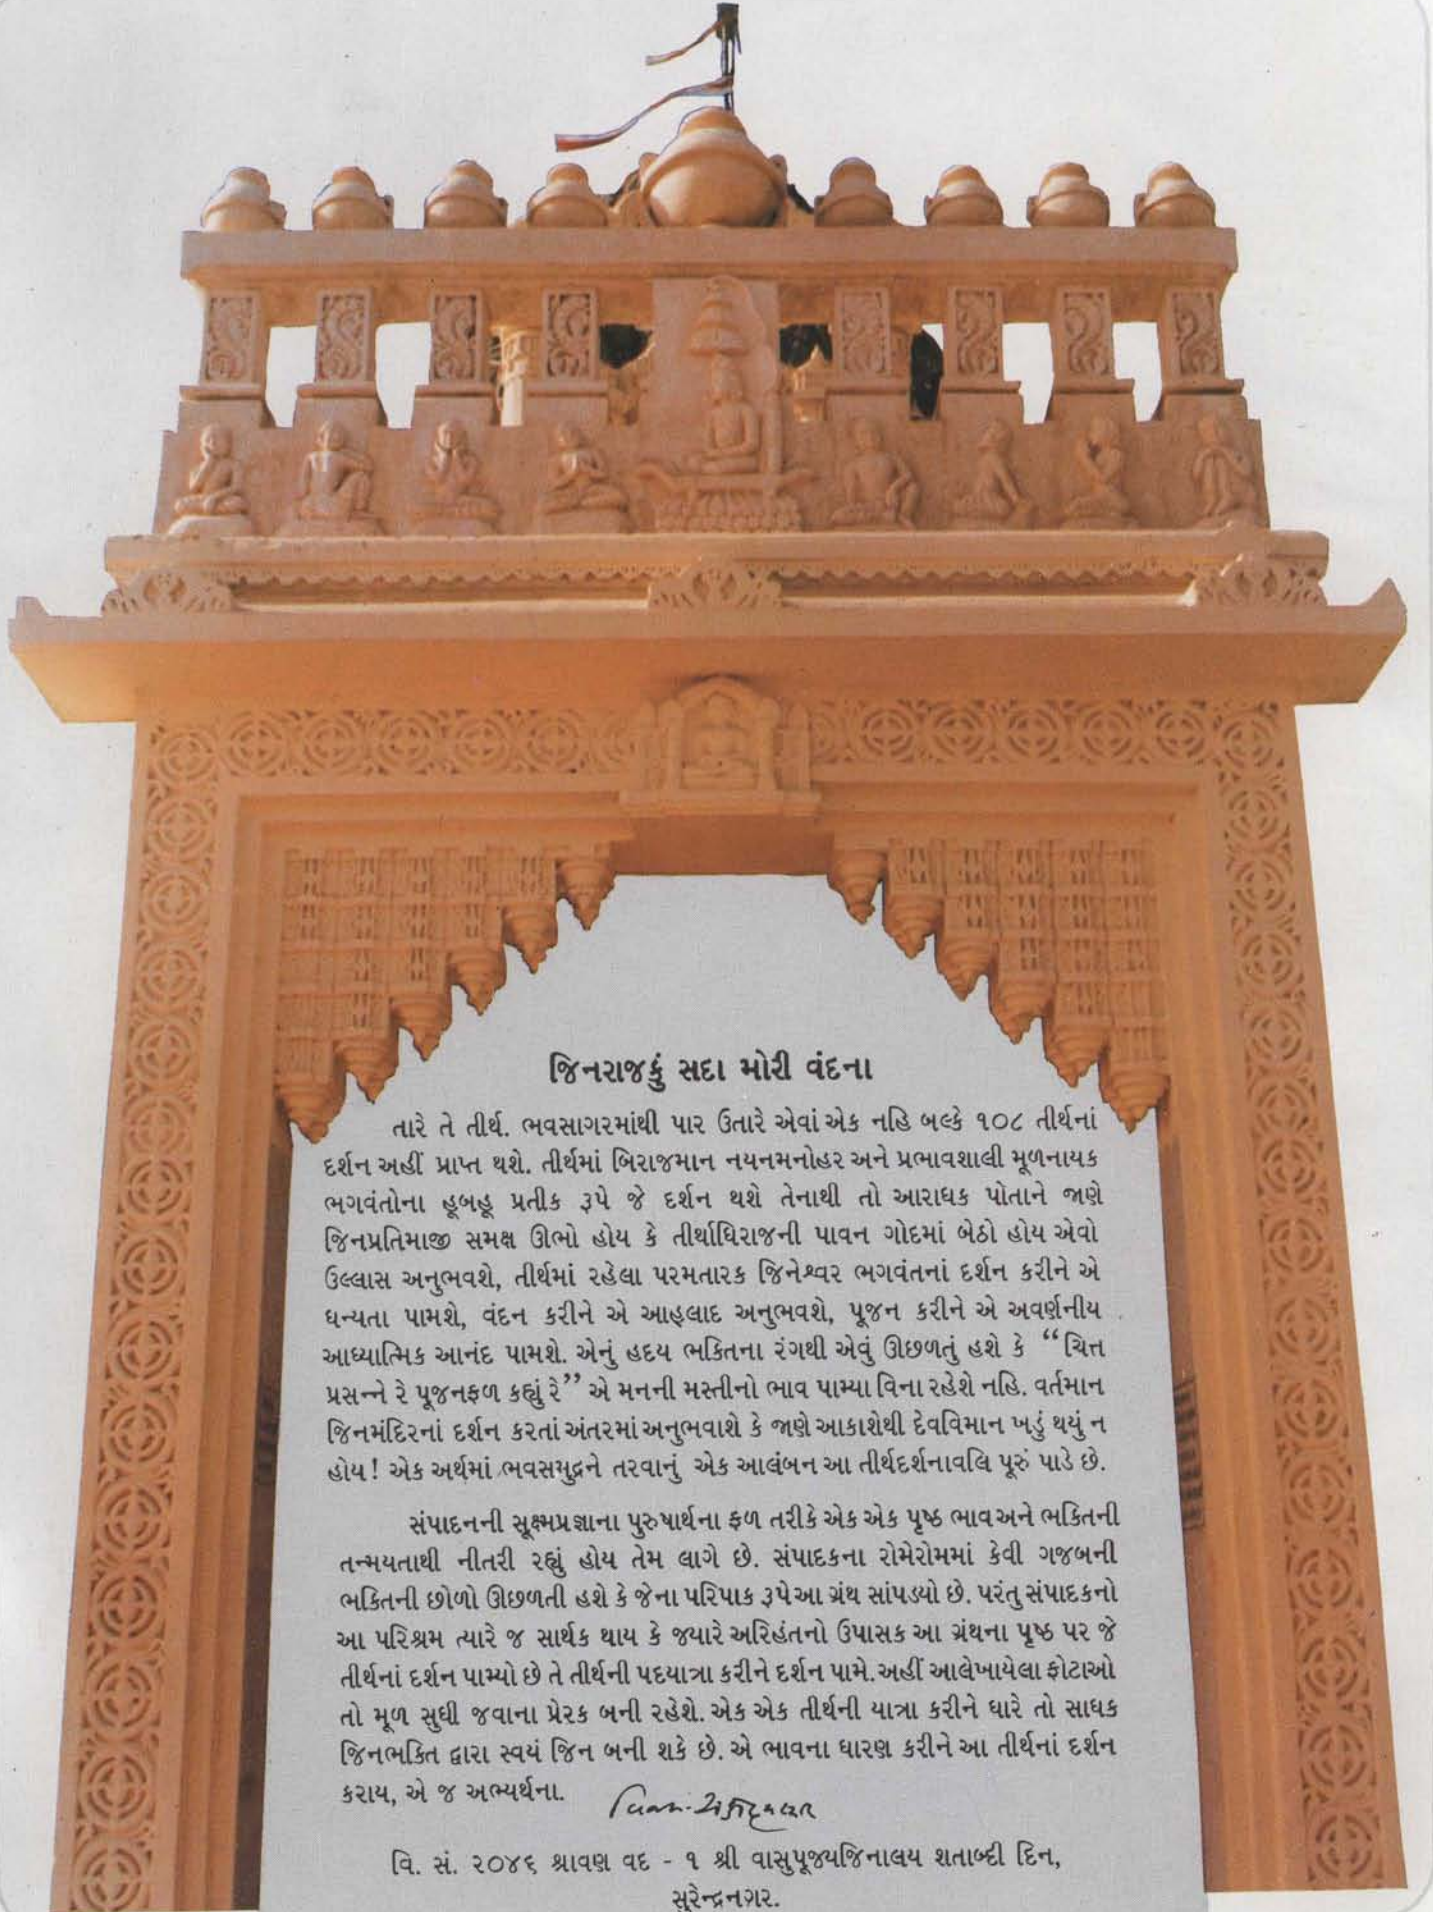 જિનરાજકું સદા મોરી વંદના
તારે તે તીર્થ. ભવસાગરમાંથી પાર ઉતારે એવાં એક નહિ બલ્કે ૧૦૮ તીર્થનાં
દર્શન અહીં પ્રાપ્ત થશે. તીર્થમાં બિરાજમાન નયનમનોહર અને પ્રભાવશાલી મૂળનાયક
ભગવંતોના હૂબહૂ પ્રતીક રૂપે જે દર્શન થશે તેનાથી તો આરાધક પોતાને જાણે
જિનપ્રતિમાજી સમક્ષ ઊભો હોય કે તીર્થાધિરાજની પાવન ગોદમાં બેઠો હોય એવો
ઉલ્લાસ અનુભવશે, તીર્થમાં રહેલા પરમતારક જિનેશ્વર ભગવંતનાં દર્શન કરીને એ
ધન્યતા પામશે, વંદન કરીને એ આહ્લાદ અનુભવશે, પૂજન કરીને એ અવર્ણનીય
આધ્યાત્મિક આનંદ પામશે. એનું હૃદય ભક્તિના રંગથી એવું ઊછળતું હશે કે “ચિત્ત
પ્રસન્ને રે પૂજનફળ કહ્યું રે” એ મનની મસ્તીનો ભાવ પામ્યા વિના રહેશે નહિ. વર્તમાન
જિનમંદિરનાં દર્શન કરતાં અંતરમાં અનુભવાશે કે જાણે આકાશેથી દેવવિમાન ખડું થયું ન
હોય! એક અર્થમાં ભવસમુદ્રને તરવાનું એક આલંબન આ તીર્થદર્શનાવલિ પૂરું પાડે છે.
સંપાદનની સૂક્ષ્મપ્રજ્ઞાના પુરુષાર્થના ફળ તરીકે એક એક પૃષ્ઠ ભાવ અને ભક્તિની
તન્મયતાથી નીતરી રહ્યું હોય તેમ લાગે છે. સંપાદકના રોમેરોમમાં કેવી ગજબની
ભક્તિની છોળો ઊછળતી હશે કે જેના પરિપાક રૂપે આ ગ્રંથ સાંપડયો છે. પરંતુ સંપાદકનો
આ પરિશ્રમ ત્યારે જ સાર્થક થાય કે જ્યારે અરિહંતનો ઉપાસક આ ગ્રંથના પૃષ્ઠ પર જે
તીર્થનાં દર્શન પામ્યો છે તે તીર્થની પદયાત્રા કરીને દર્શન પામે. અહીં આલેખાયેલા ફોટાઓ
તો મૂળ સુધી જવાના પ્રેરક બની રહેશે. એક એક તીર્થની યાત્રા કરીને ધારે તો સાધક
જિનભક્તિ દ્વારા સ્વયં જિન બની શકે છે. એ ભાવના ધારણ કરીને આ તીર્થનાં દર્શન
કરાય, એ જ અભ્યર્થના.
વિ. સં. ૨૦૪૬ શ્રાવણ વદ - ૧ શ્રી વાસુપૂજ્યજિનાલય શતાબ્દી દિન,
સુરેન્દ્રનગર.